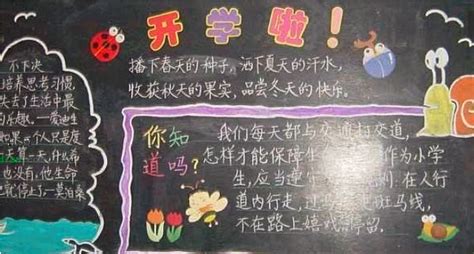 开学啦!
播下春天的种子,洒下夏天的汗水,
收获秋天的果实,品尝冬天的快乐。
不下决
培养思考习惯,
失去了生活中最
的乐趣。—爱迪生
如果一个人只是度
天算一天,什么希
也没有,他生命
也就停止了—莫泊桑
你知
道吗?
我们每天都与交通打交道,
怎样才能保障生 作为小学
生,应当遵 在人行
道内行走,过马 斑马线,
不在路上嬉戏 停留,